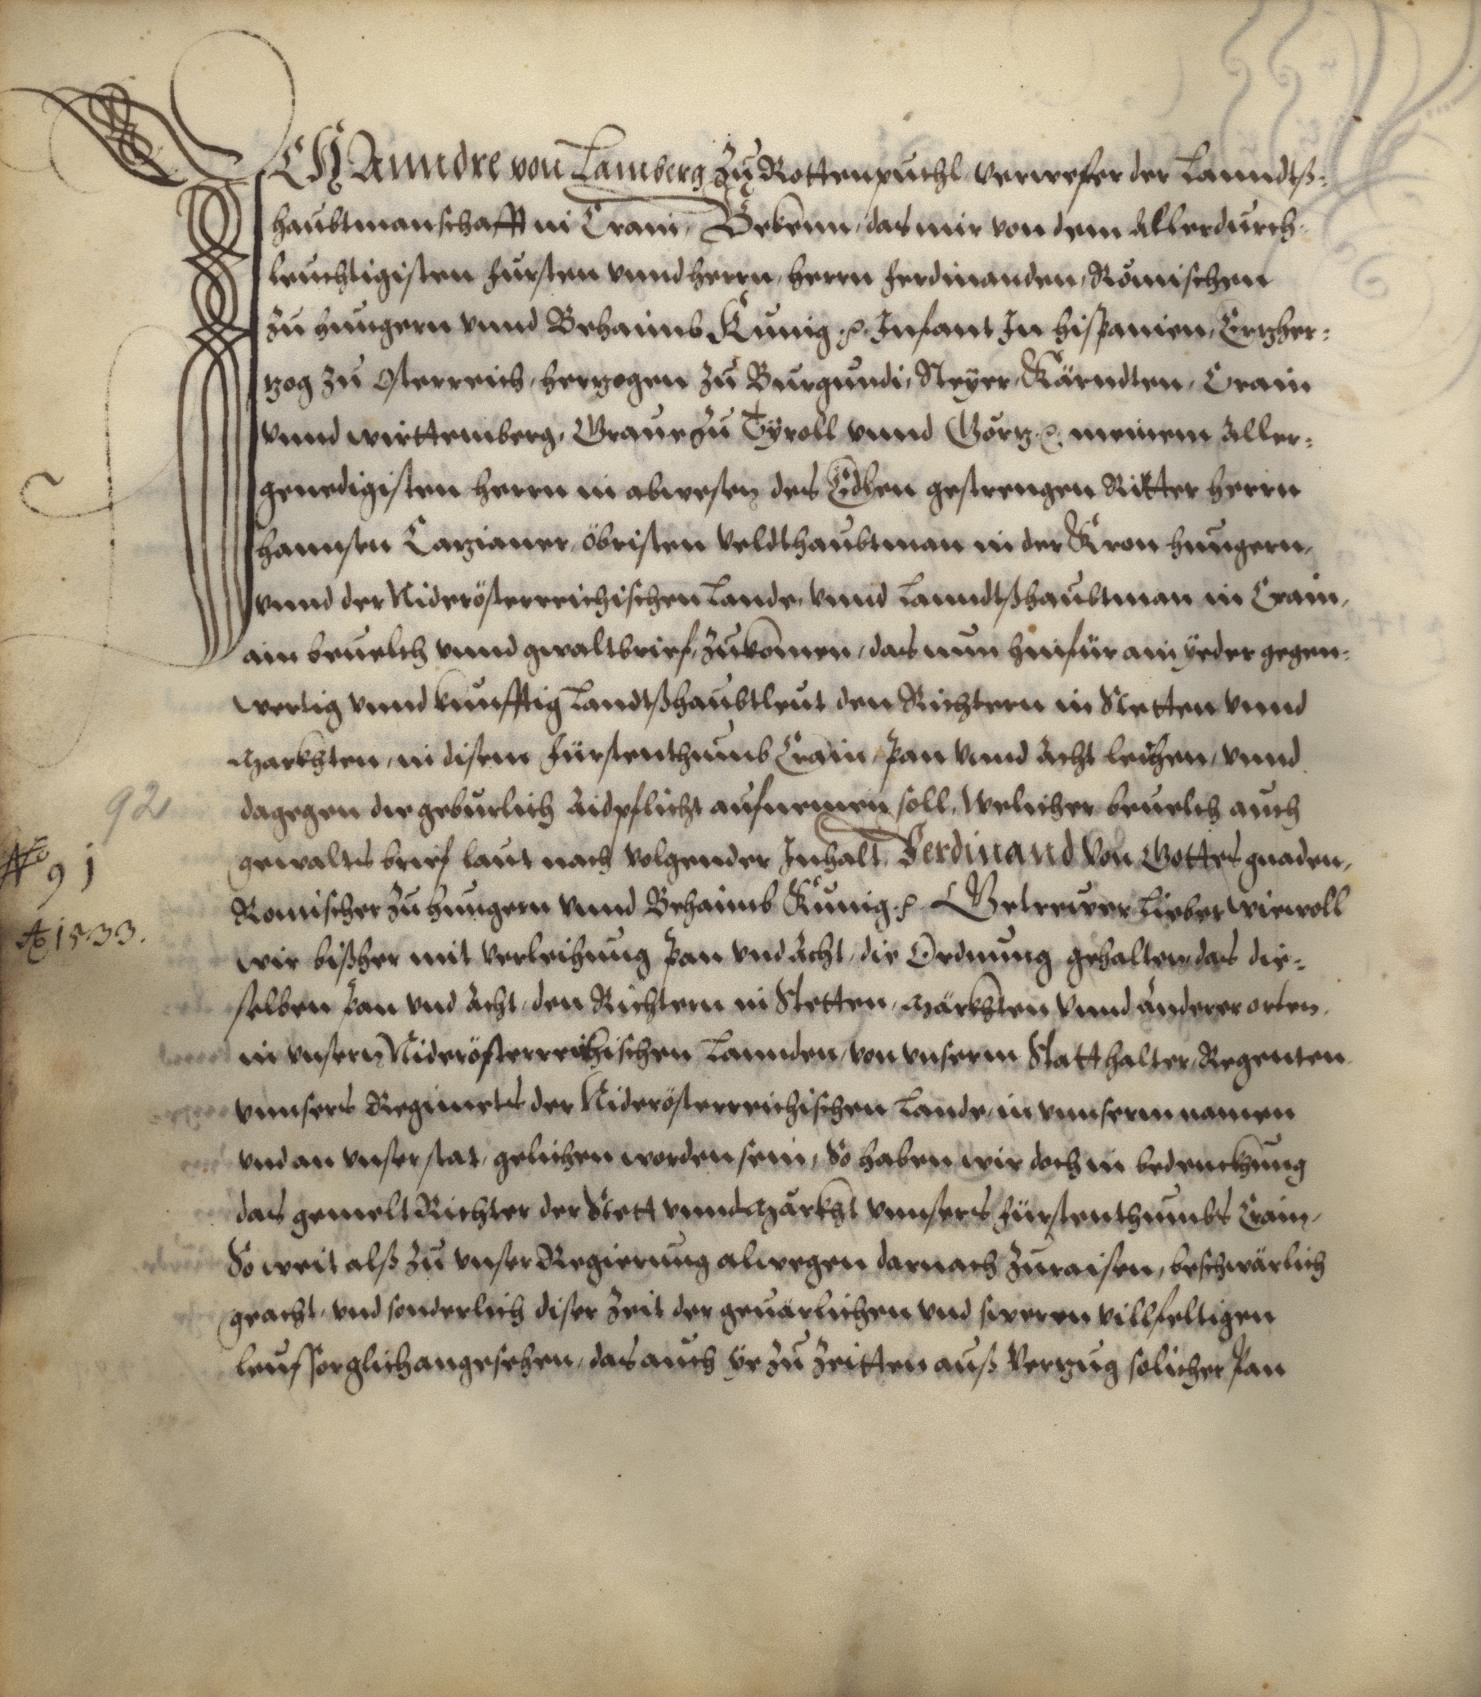 ICH Anndre von Lamberg zu Rottenpuchl verweser der Lanndtß-
haubtmanschafft in Crain, Bekenn, das mir von dem Allerdurch-
leuchtigisten fursten vnnd herrn, herrn ferdinanden, Römischen
zu hungern vnnd Behaimb Kunig .&. Infant In hispanien, Ertzher-
tzog zu osterreich, hertzogen zu Burgundi, Steyer, Kärndten, Crain
vnnd wirttemberg, Graue zu Tyroll vnnd Görtz .&. meinem Aller-
genedigisten herrn in abwesen des Edlen gestrengen Ritter herrn
hannsen Catzianer, öbristen veldthaubtman in der Kron hungern,
vnnd der Niderösterreichischen Lande, vnnd Lanndtßhaubtman in Crain,
ain beuelch vnnd gwaltbrief, zukomen, das nun hinfür ain yeder gegen-
wertig vnnd kunfftig Landtßhaubtleut den Richtern in Stetten vnnd
Märkhten, in disem fürstenthumb Crain, Pan vnnd Acht leichen, vnnd
dagegen die geburlich Aidpflicht aufnemen soll, Welicher beuelch auch
gewalts brief laut nach volgender Inhalt, Ferdinand von Gottes gnaden,
Romischer zu hungern vnnd Behaimb Kunig .&. Getrewer Lieber wiewoll
wir bißher mit verleihung Pan vnd Acht, die Ordnung gehalten, das die-
selben Pan vnd Acht, den Richtern in Stetten, Märkhten vnnd anderer orten,
in vnsern Niderösterreichischen Lannden, von vnserm Statthalter, Regenten
vnnsers Regiments der Niderösterreichischen Lande, in vnnserm namen
vnd an vnser stat, gelichen worden sein, So haben wir doch in bedenckhung
das gemelt Richter der Stett vnnd Märkht vnnsers fürstenthumbs Crain,
So weit alß zu vnser Regierung alwegen darnach zuraisen, beschwärlich
geacht, vnd sonderlich diser zeit der geuärlichen vnd sweren villfeltigen
leuf sorglich angesehen, das auch ye zu zeitten auß verzug solicher Pan
92
No 91
Ao 1533.